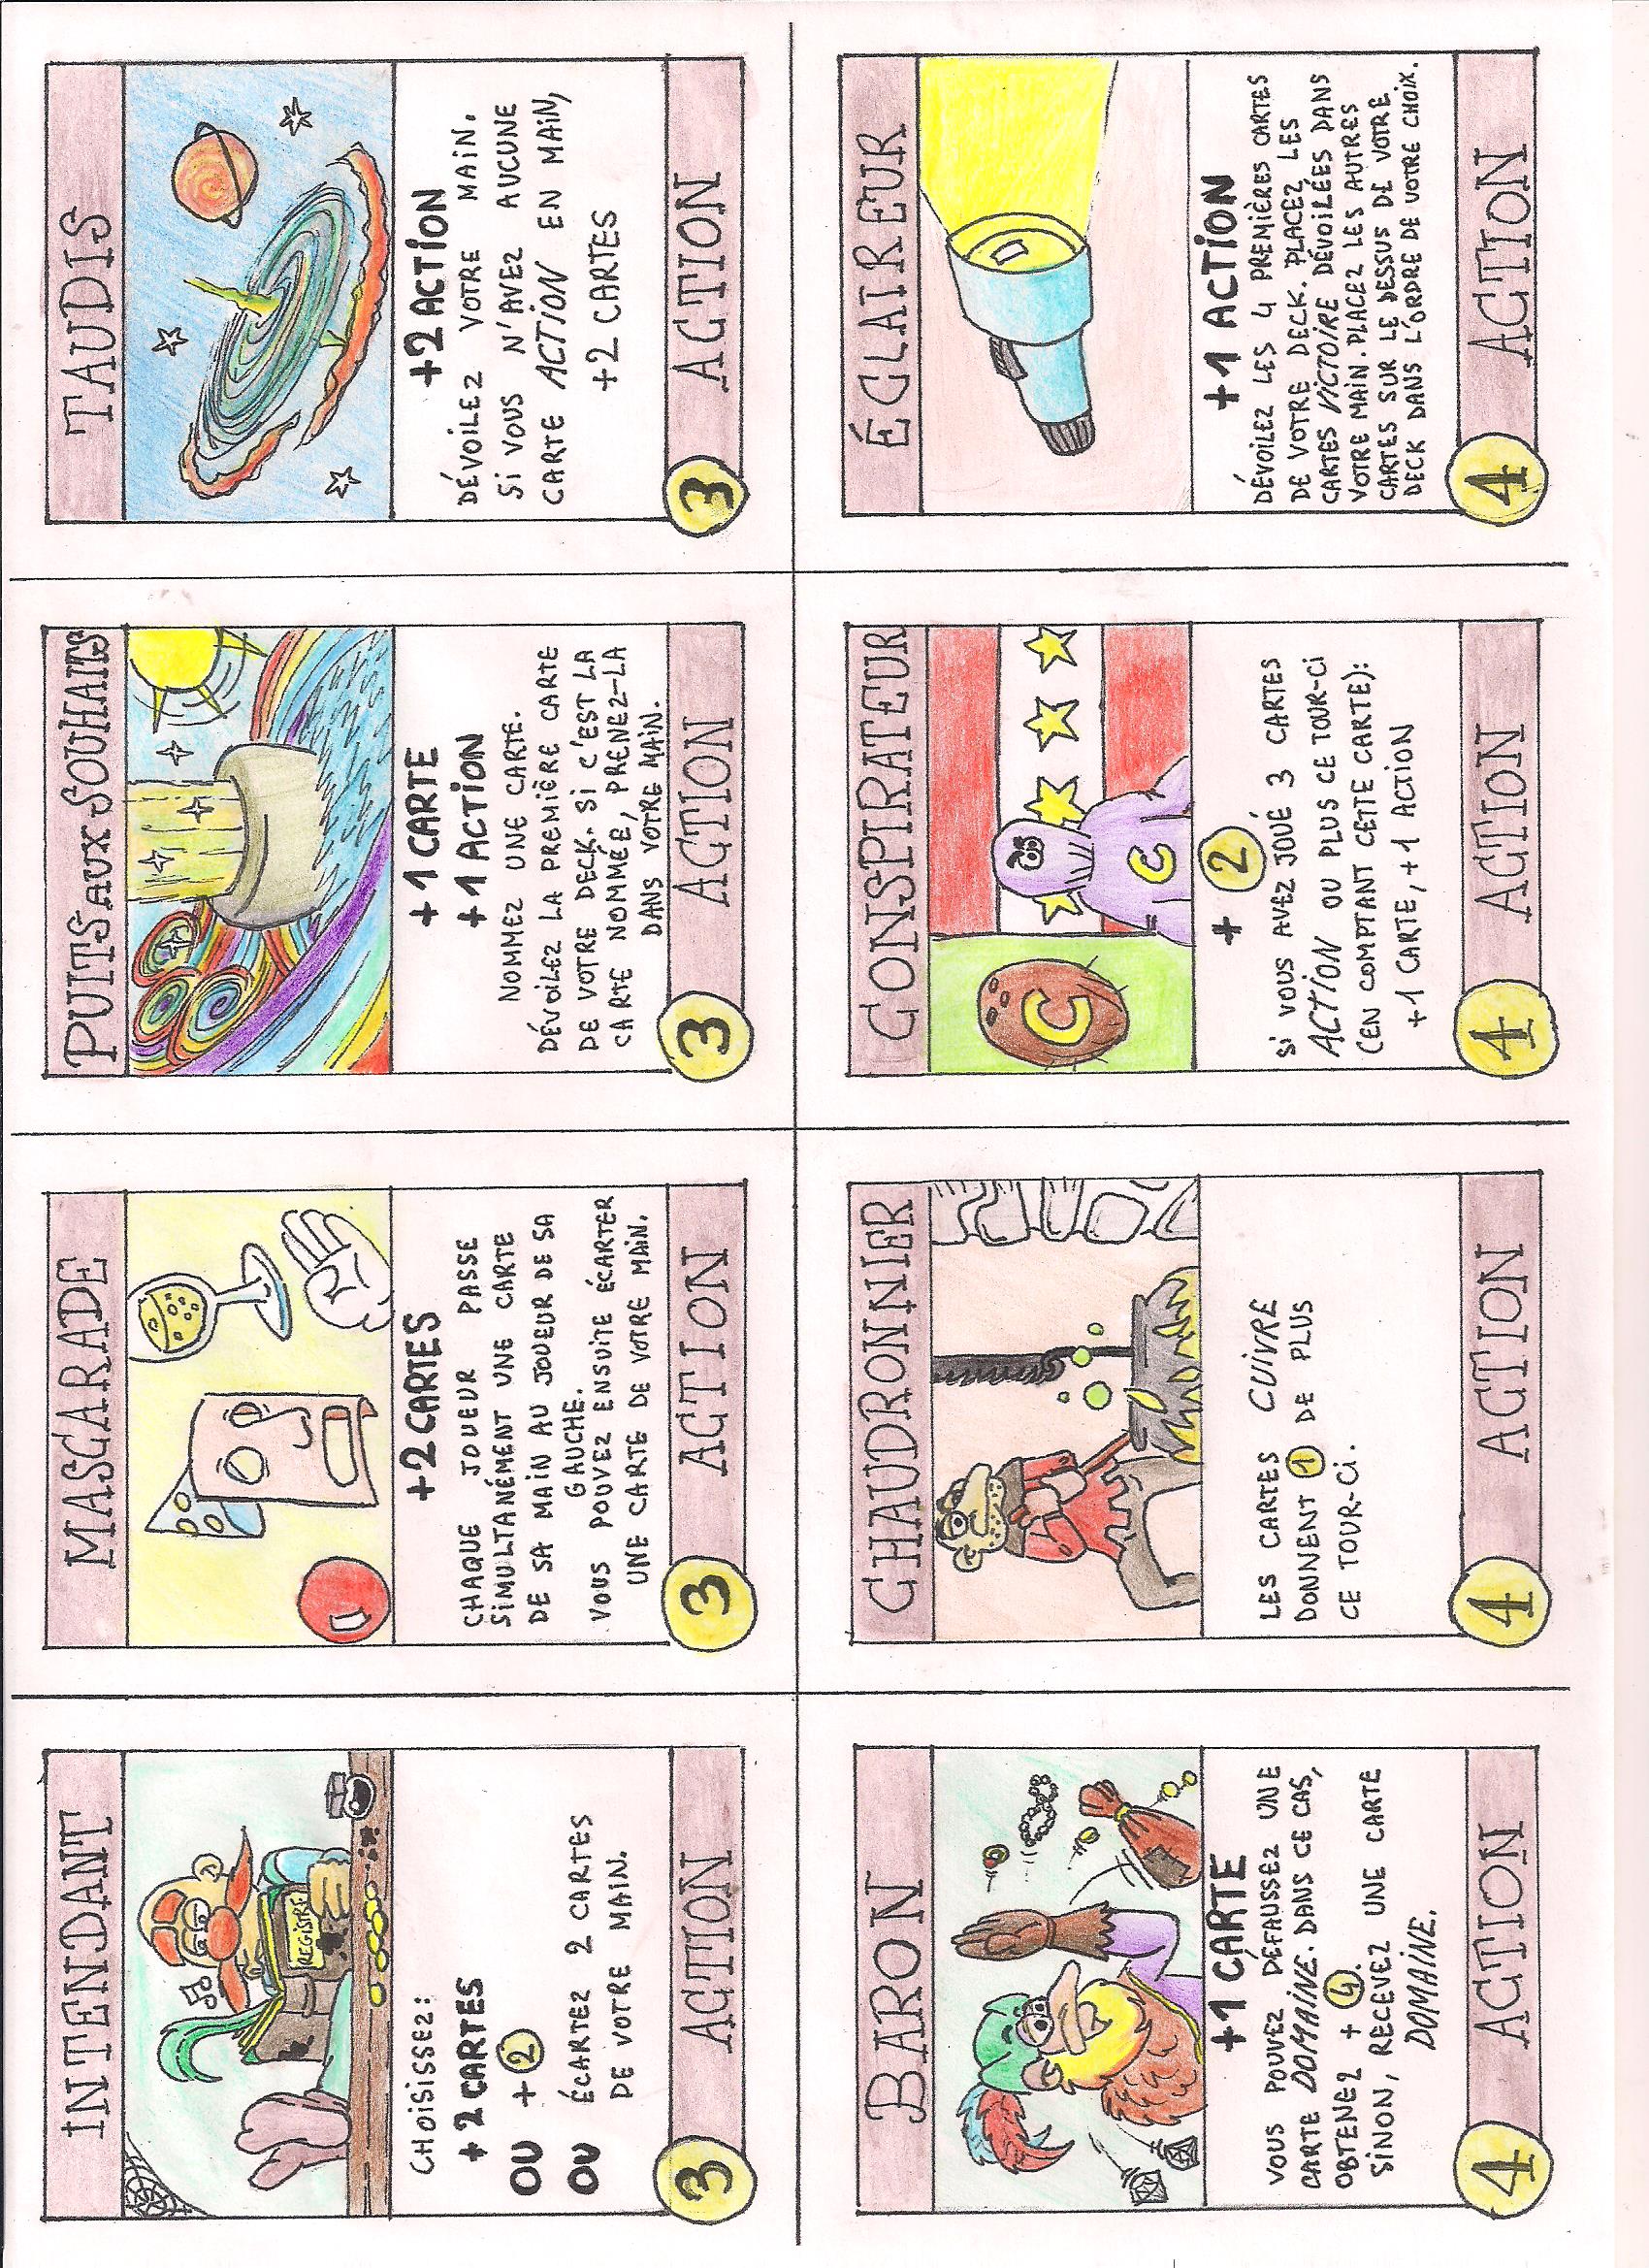 INTENDANT
REGISTRE
CHOISISSEZ:
+2 CARTES
OU +2
OU ÉCARTEZ 2 CARTES
DE VOTRE MAIN.
3
ACTION
MASCARADE
+2 CARTES
CHAQUE JOUEUR PASSE
SIMULTANÉMENT UNE CARTE
DE SA MAIN AU JOUEUR DE SA
GAUCHE.
VOUS POUVEZ ENSUITE ÉCARTER
UNE CARTE DE VOTRE MAIN.
3
ACTION
PUITS AUX SOUHAITS
+1 CARTE
+1 ACTION
NOMMEZ UNE CARTE.
DÉVOILEZ LA PREMIÈRE CARTE
DE VOTRE DECK. SI C'EST LA
CARTE NOMMÉ, PRENEZ-LA
DANS VOTRE MAIN.
3
ACTION
TAUDIS
+2 ACTION
DÉVOILEZ VOTRE MAIN.
SI VOUS N'AVEZ AUCUNE
CARTE ACTION EN MAIN,
+2 CARTES
3
ACTION
BARON
+1 CARTE
VOUS POUVEZ DÉFAUSSEZ UNE
CARTE DOMAINE. DANS CE CAS,
OBTENEZ + 4.
SINON, RECEVEZ UNE CARTE
DOMAINE.
4
ACTION
CHAUDRONNIER
LES CARTES CUIVRE
DONNENT 1 DE PLUS
CE TOUR-CI.
4
ACTION
CONSPIRATEUR
C
C
+ 2
SI VOUS AVEZ JOUÉ 3 CARTES
ACTION OU PLUS CE TOUR-CI
(EN COMPTANT CETTE CARTE):
+1 CARTE, +1 ACTION
4
ACTION
ÉCLAIREUR
+1 ACTION
DÉVOILEZ LES 4 PREMIÈRES CARTES
DE VOTRE DECK. PLACEZ LES
CARTES VICTOIRE DÉVOILÉES DANS
VOTRE MAIN. PLACEZ LES AUTRES
CARTES SUR LE DESSUS DE VOTRE
DECK DANS L'ORDRE DE VOTRE CHOIX.
4
ACTION